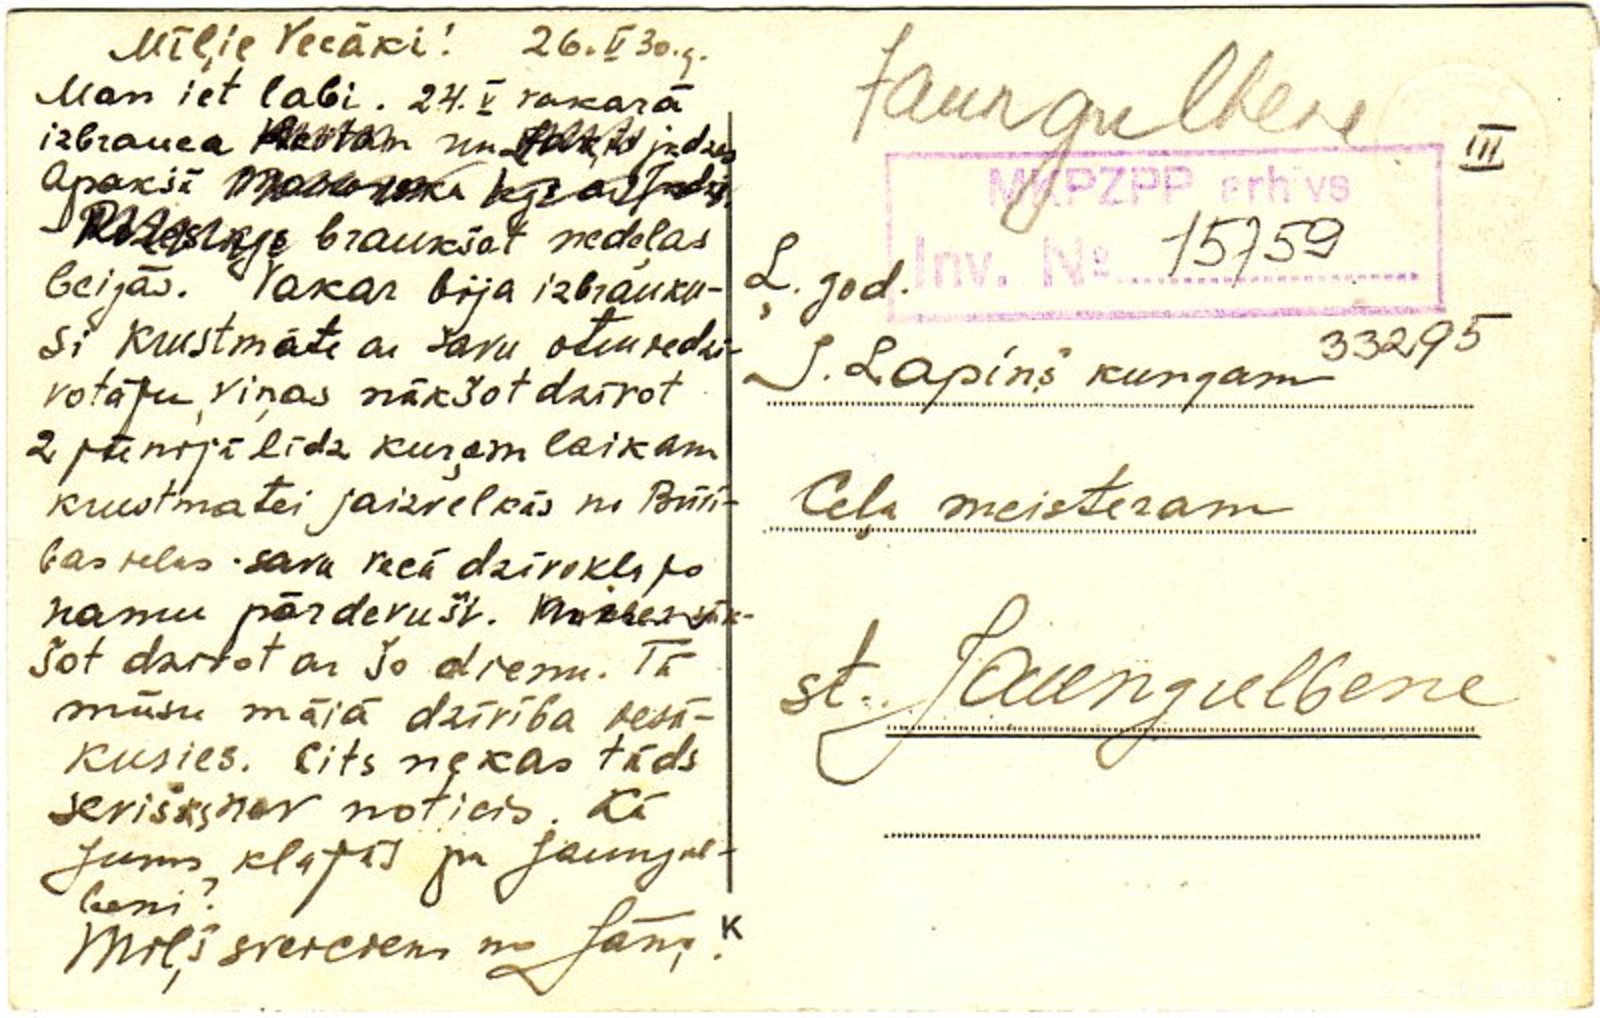 Mīļie Vecāki! 26.V 30.g.
Man iet labi. 24.V vakarā
izbrauca un
Apakšā
braukšot nedeļas
beigās. Vakar bija izbrauku-
si Krustmāte ar savu otru iedzi-
votāju, viņas nākšot dzīvot
2 jūnijā līdz kuŗam laikam
krustmatei jaizvelkās no
savu vecā dzīvokļa jo
namu pārdevuši.
šot dzīvot ar šo dienu. Tā
mūsu mājā dzīvība iesā-
kusies. Cits nekas tāds
sevišķs nav noticis. Kā
Jums klājās pa Jaungul-
beni?
Mīļš sveiciens no Jāņa.
K
Jaungulbene
III
MKPZPP arhīvs
Inv. № 15759
33295
Ļ. god.
J. Lapiņš kungam
Ceļa meisteram
st. Jaungulbene